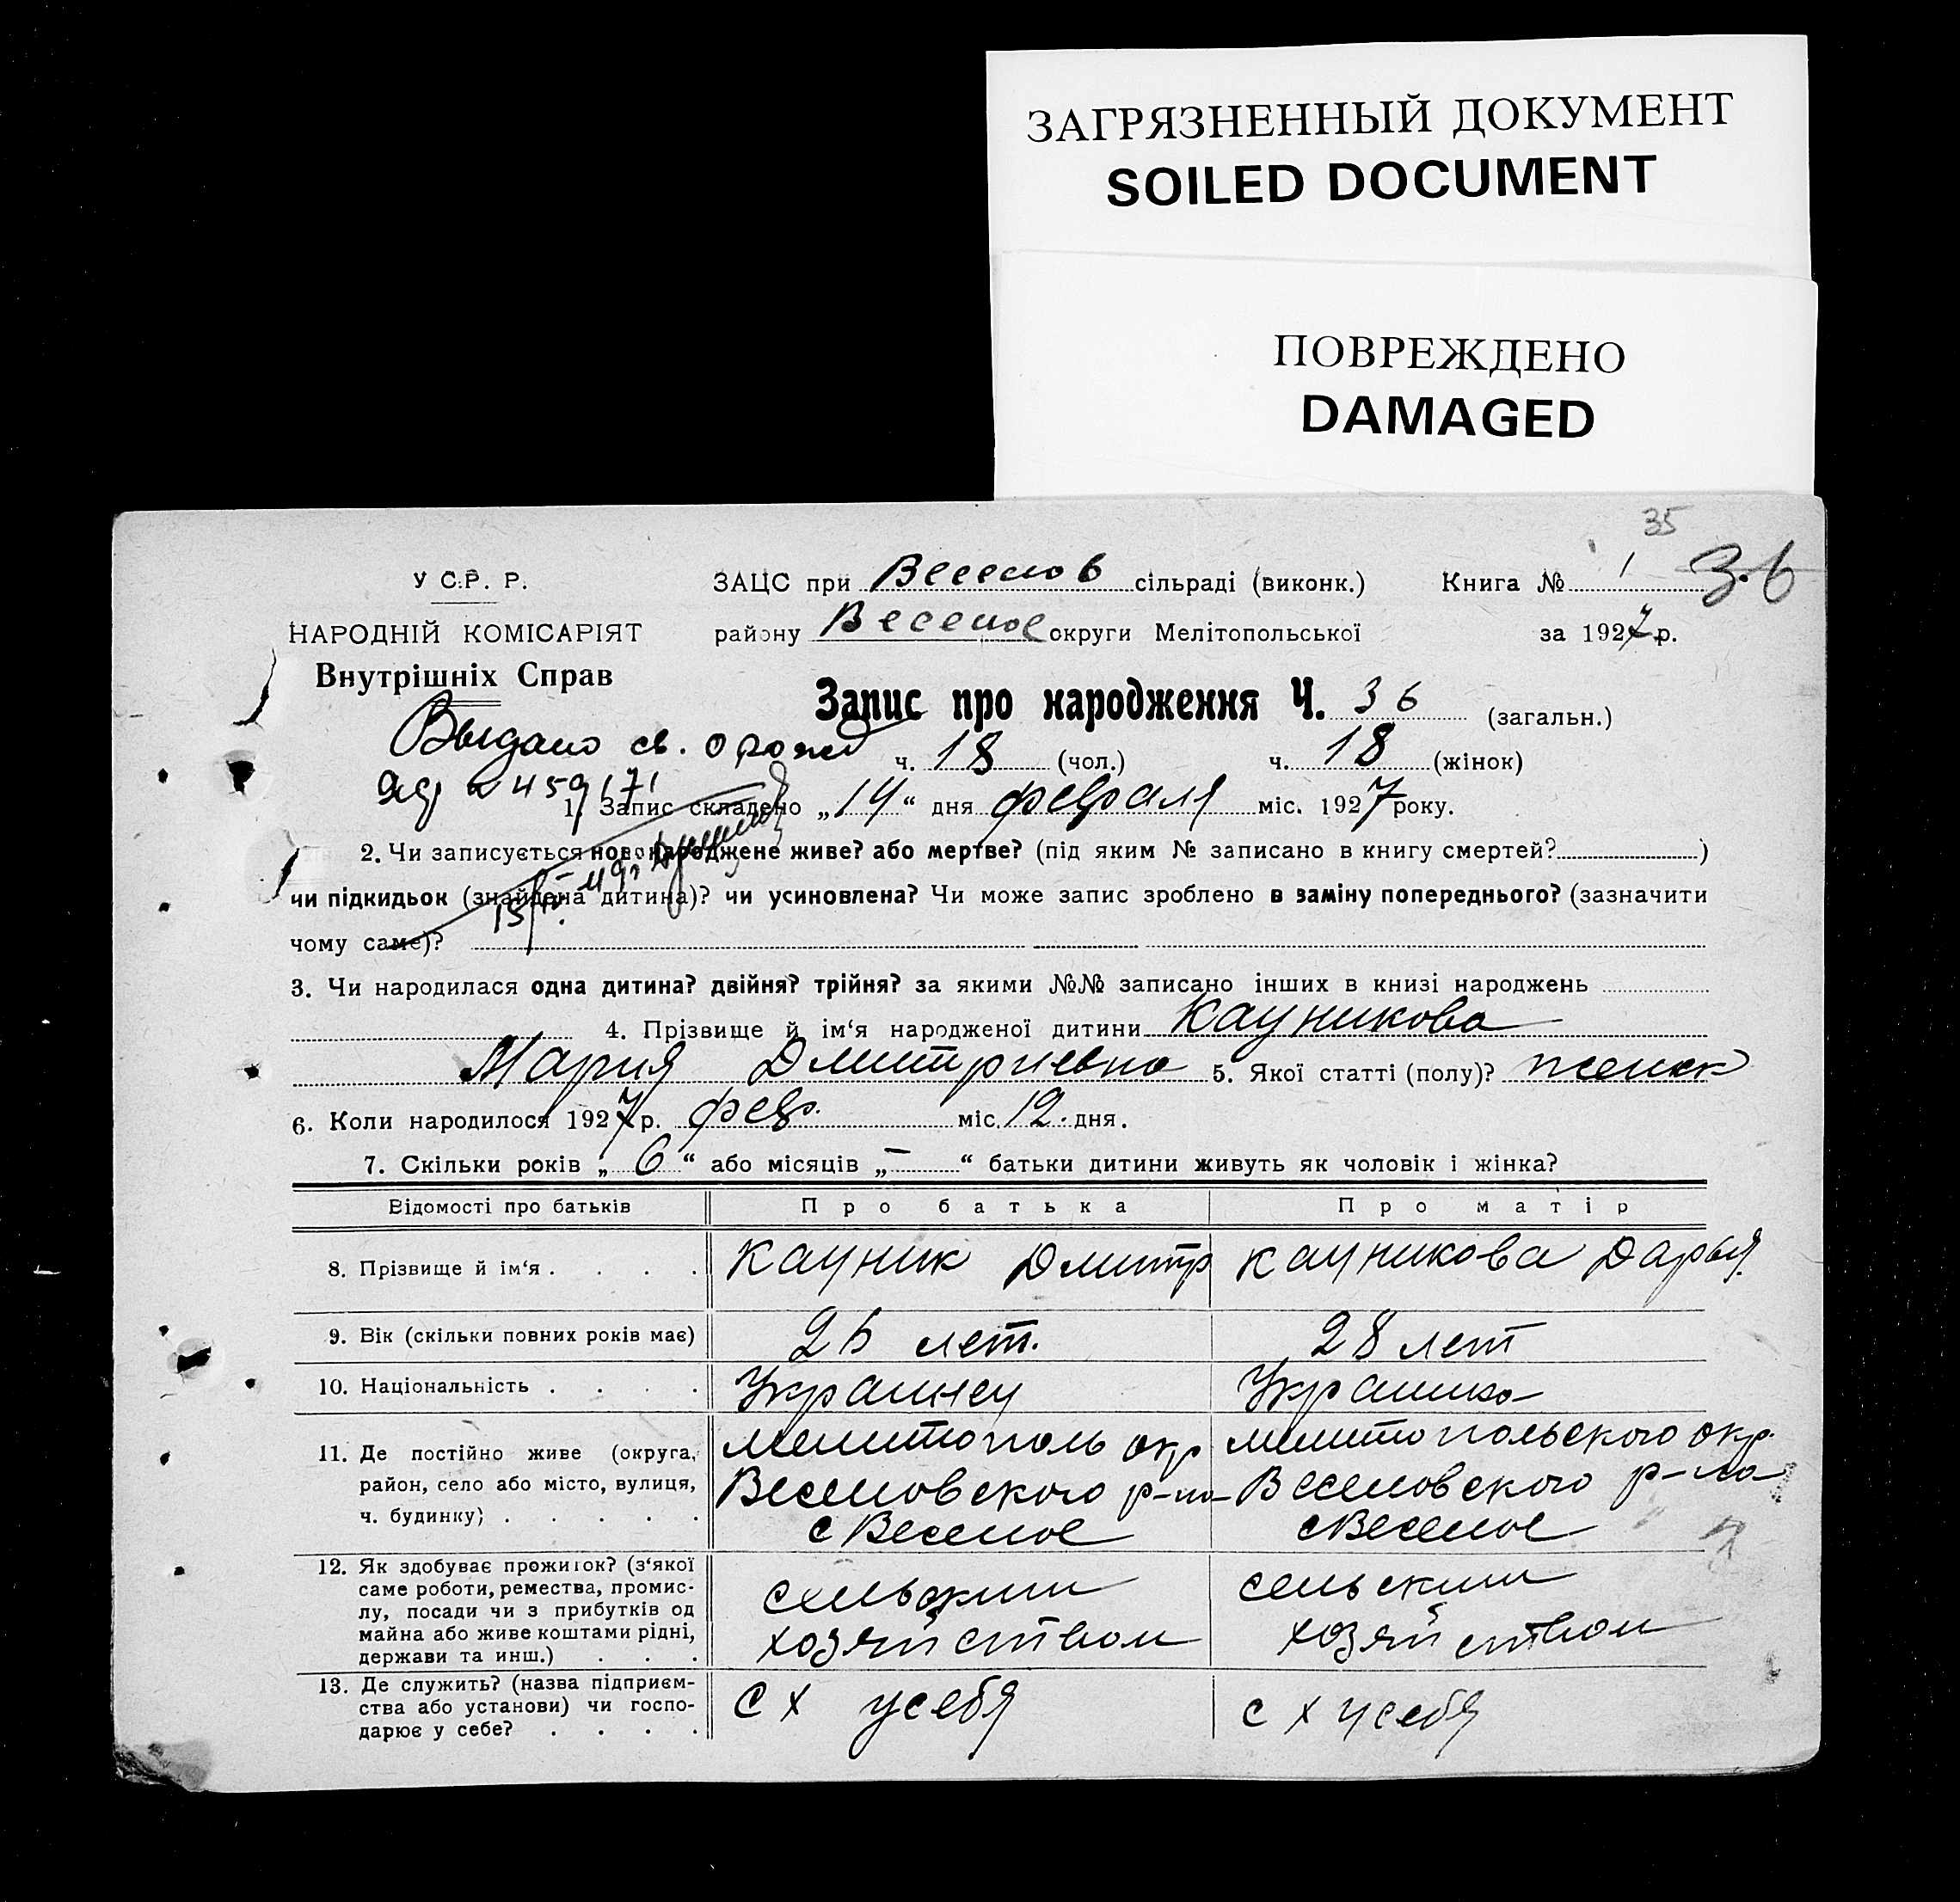 ЗАГРЯЗНЕННЫЙ ДОКУМЕНТ
SOILED DOCUMENT
ПОВРЕЖДЕНО
DAMAGED
35
У С.Р. Р. ЗАЦС при Веселов сільраді (виконк.) Книга № 1 36
НАРОДНІЙ КОМІСАРІЯТ району Веселое округи Мелітопольської за 1927 р.
Внутрішніх Справ
Запис про народження Ч. 36 (загальн.)
Выдано св. о рожд ч. 18 (чол.) ч. 18 (жінок)
459171
1. Запис складено „14“ дня февраля міс. 1927 року.
2. Чи записується новонароджене живе? або мертве? (під яким № записано в книгу смертей? )
чи підкидьок (знайдена дитина)? чи усиновлена? Чи може запис зроблено в заміну попереднього? (зазначити
чому саме)?
3. Чи народилася одна дитина? двійня? трійня? за якими №№ записано інших в книзі народжень
4. Прізвище й ім‘я народженої дитини Кацникова
Мария Дмитриевна 5. Якої статті (полу)? женск
6. Коли народилося 1927 р. февр. міс. 12. дня.
7. Скільки років „ 6 “ або місяців „ – “ батьки дитини живуть як чоловік і жінка?
Відомості про батьків Про батька Про матір
8. Прізвище й ім‘я . . . . Кацник Дмитр Кацникова Дарья
9. Вік (скільки повних років має) 26 лет. 28 лет
10. Національність . . . . Украинец Украинка
11. Де постійно живе (округа, Мелитополь окр Мелитопольского окр.
район, село або місто, вулиця, Веселовского р-на Веселовского р-на
ч. будинку) . . . . . с Веселое с Веселое
12. Як здобуває прожиток? (з‘якої
саме роботи, ремества, промис- сельским сельским
лу, посади чи з прибутків од
майна або живе коштами рідні, хозяйством хозяйством
держави та инш.) . . .
13. Де служить? (назва підприєм- с х у себя с х у себя
ства або установи) чи госпо-
дарює у себе? . . . .